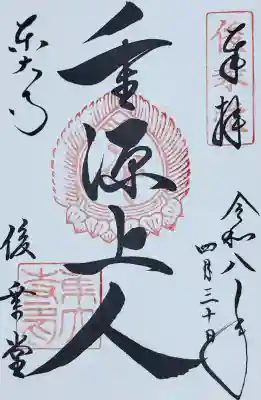 奉拝
令和八年
四月三十日
重源上人
東大寺
俊乗堂